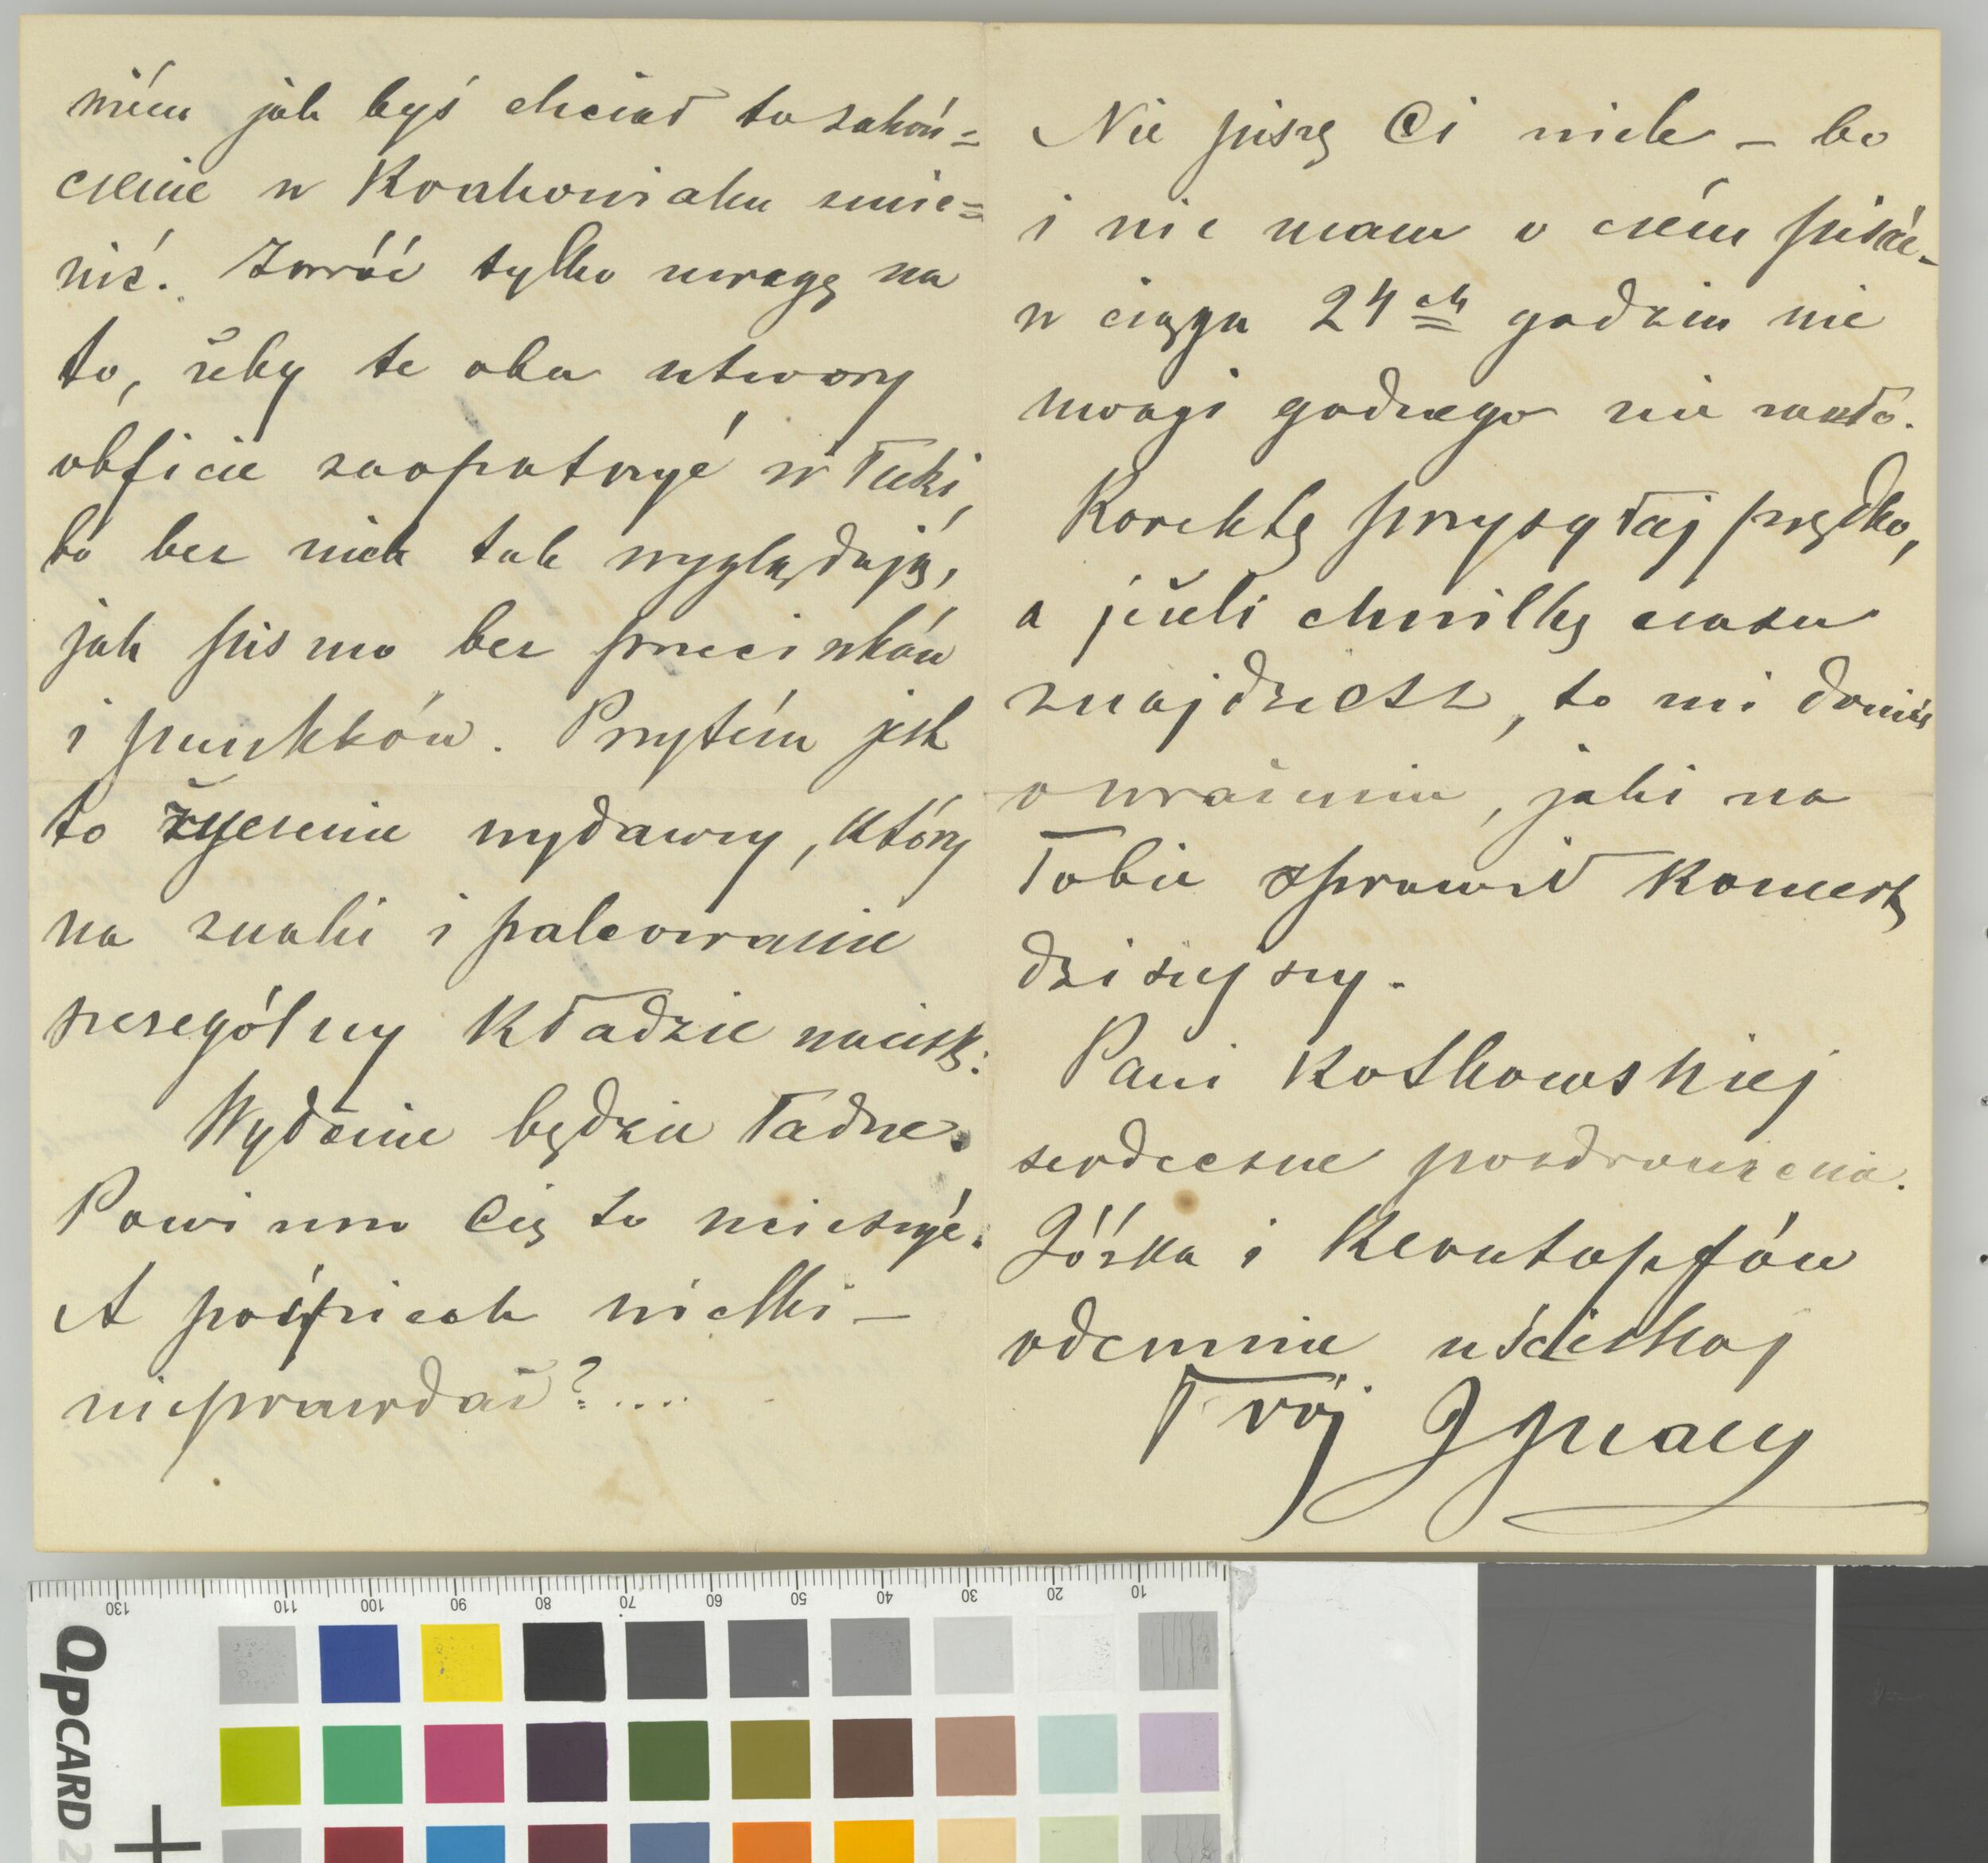 niém jak byś chciał to zakoń=
czenie w Krakowiaku zmie=
nić. Zwróć tylko uwagę na
to, żeby te oba utwory
obficie zaopatrzyć w łuki,
bo bez nich tak wyglądają,
jak pismo bez przecinków
i punktów. Przytém jest
to życzenie wydawcy, który
na znaki i palcowanie
szczególny kładzie nacisk.
Wydanie będzie ładne.
Powinno Cię to ucieszyć.
A pośpiech wielki –
nieprawdaż? ....
Nie piszę Ci wiele – bo
i nie mam o czém pisać –
w ciągu 24ch godzin nic
uwagi godnego nie zaszło.
Korektę przysyłaj prędko,
a jeżeli chwilkę czasu
znajdziesz, to mi donieś
o wrażeniu, jaki na
Tobie sprawił koncert
dzisiejszy.
Pani Kotkowskiej
serdeczne pozdrowienia.
Józka i Kerntopfów
odemnie uściskaj
Twój Ignacy
QPCARD 2
130 110 100 90 80 70 60 50 40 30 20 10